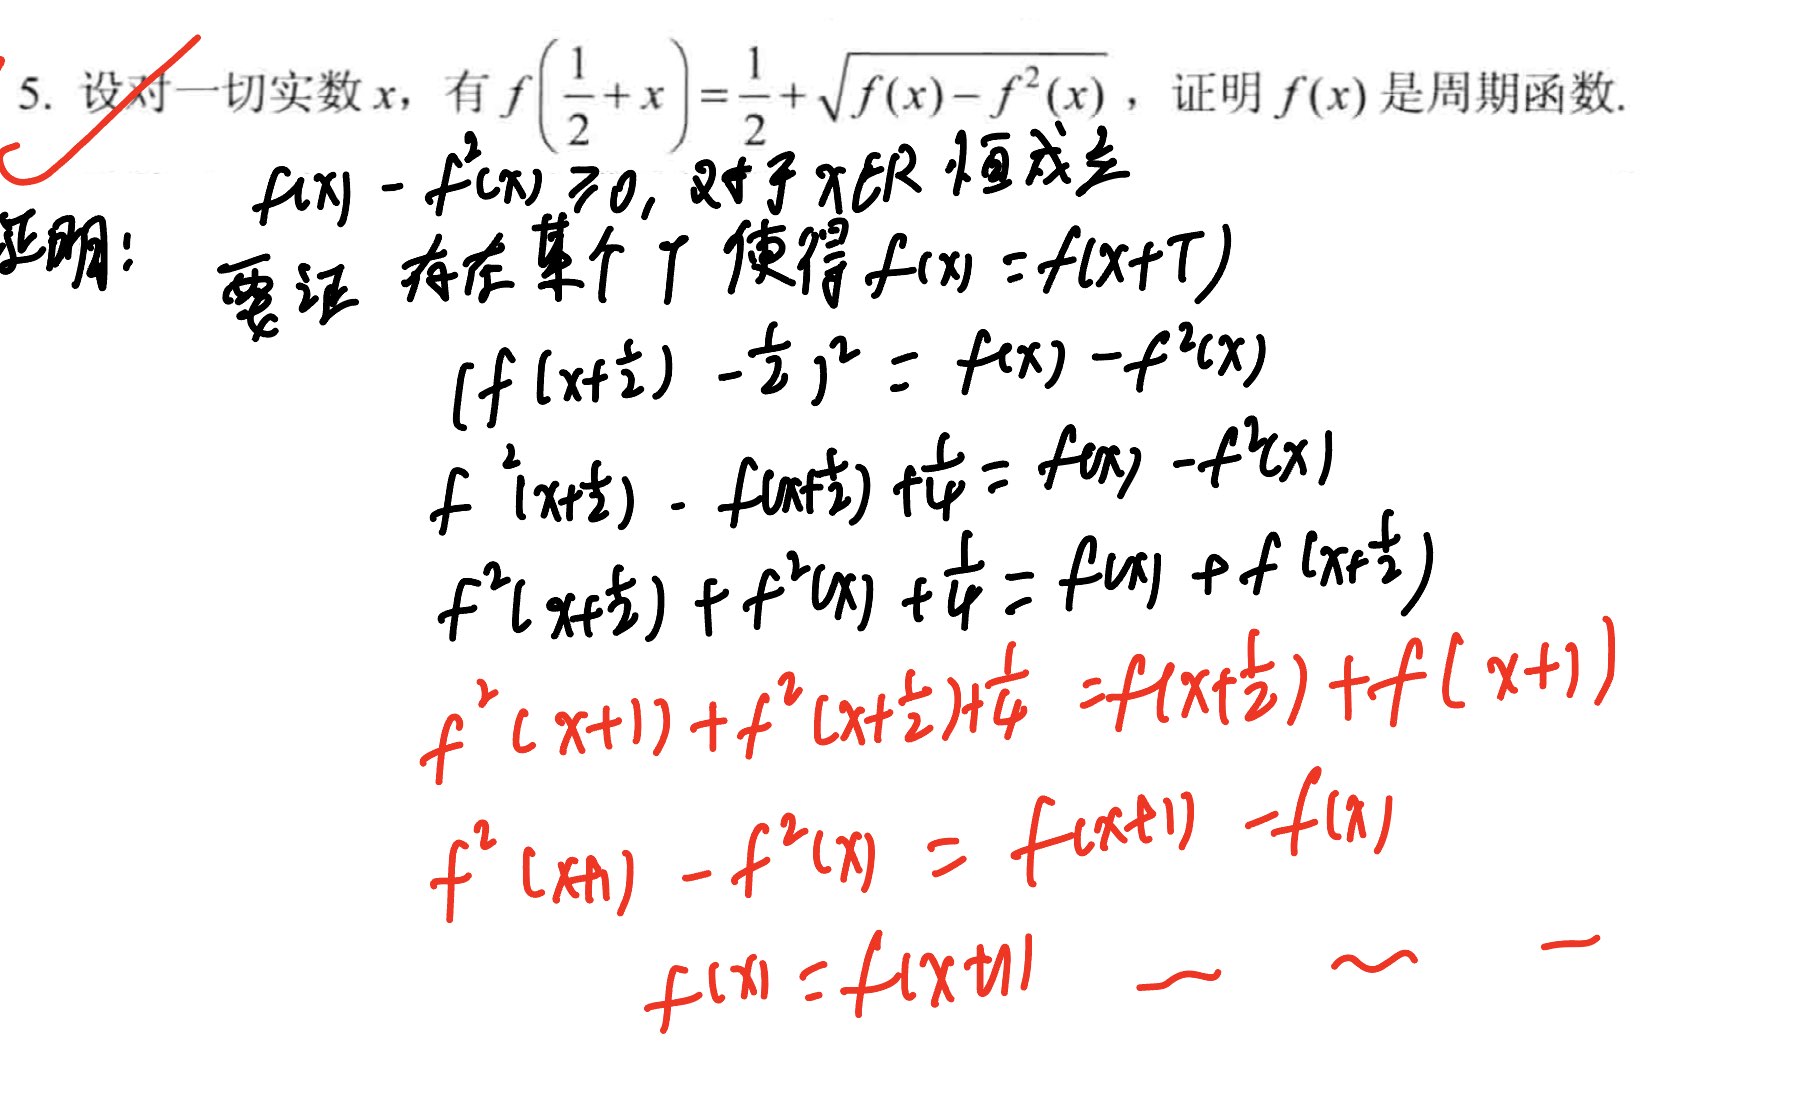 5. 设对一切实数 x，有 f(1/2 + x) = 1/2 + √(f(x) − f²(x))，证明 f(x) 是周期函数.
证明: f(x) - f²(x) ≥ 0, 对于 x∈R 恒成立
要证 存在某个 T 使得 f(x) = f(x+T)
(f(x+1/2) - 1/2)² = f(x) - f²(x)
f²(x+1/2) - f(x+1/2) + 1/4 = f(x) - f²(x)
f²(x+1/2) + f²(x) + 1/4 = f(x) + f(x+1/2)
f²(x+1) + f²(x+1/2) + 1/4 = f(x+1/2) + f(x+1)
f²(x+1) - f²(x) = f(x+1) - f(x)
f(x) = f(x+1)